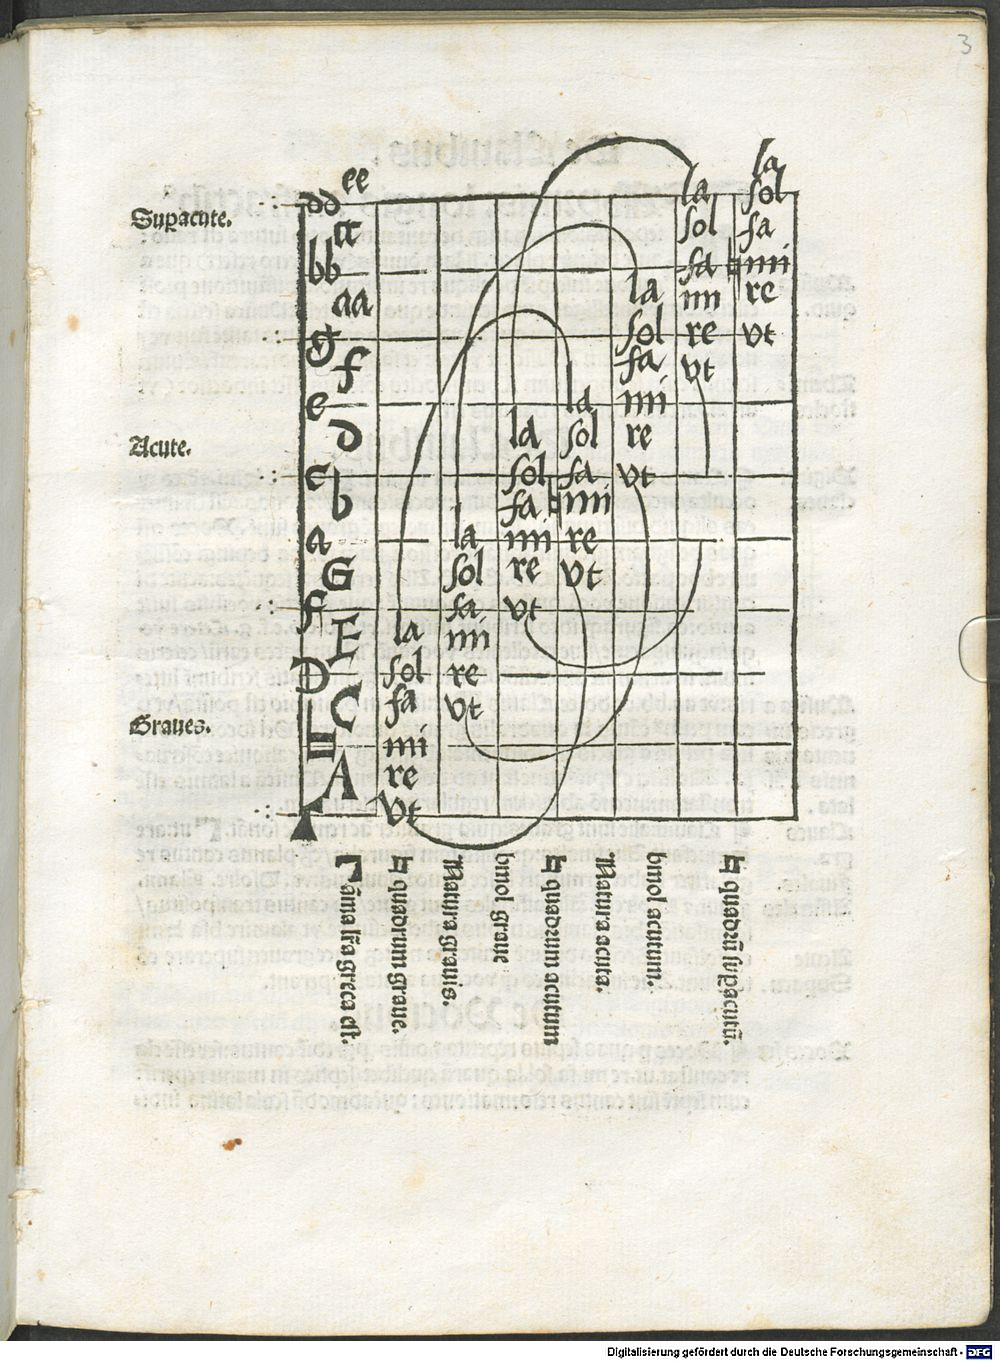 3
ee
dd
cc
bb
aa
g
f
e
d
c
b
a
G
F
E
D
C
A
Supacute.
Acute.
Graues.
la
sol
fa
mi
re
vt
la
sol
fa
mi
re
vt
la
sol
fa
mi
re
vt
la
sol
fa
♮mi
re
vt
la
sol
fa
mi
re
vt
la
sol
fa
mi
re
vt
la
sol
fa
♮mi
re
vt
greca est.
♮ quadrum graue.
Natura grauis.
bmol graue
♮ quadrum acutum
Natura acuta.
bmol acutum.
♮ quadrū supacutū.
Digitalisierung gefördert durch die Deutsche Forschungsgemeinschaft - DFG